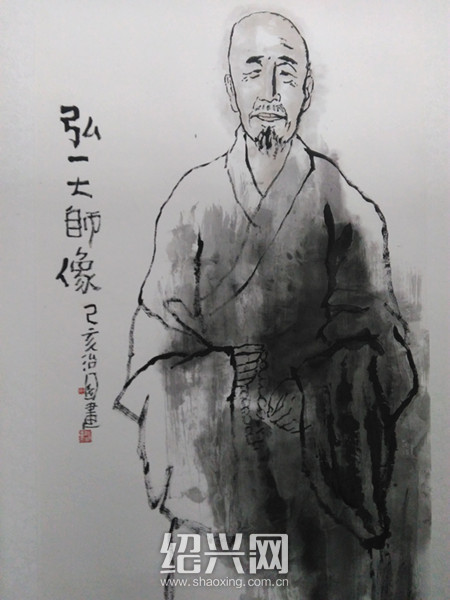 弘一大師像
己亥治国畫
绍兴网
www.shaoxing.com.cn